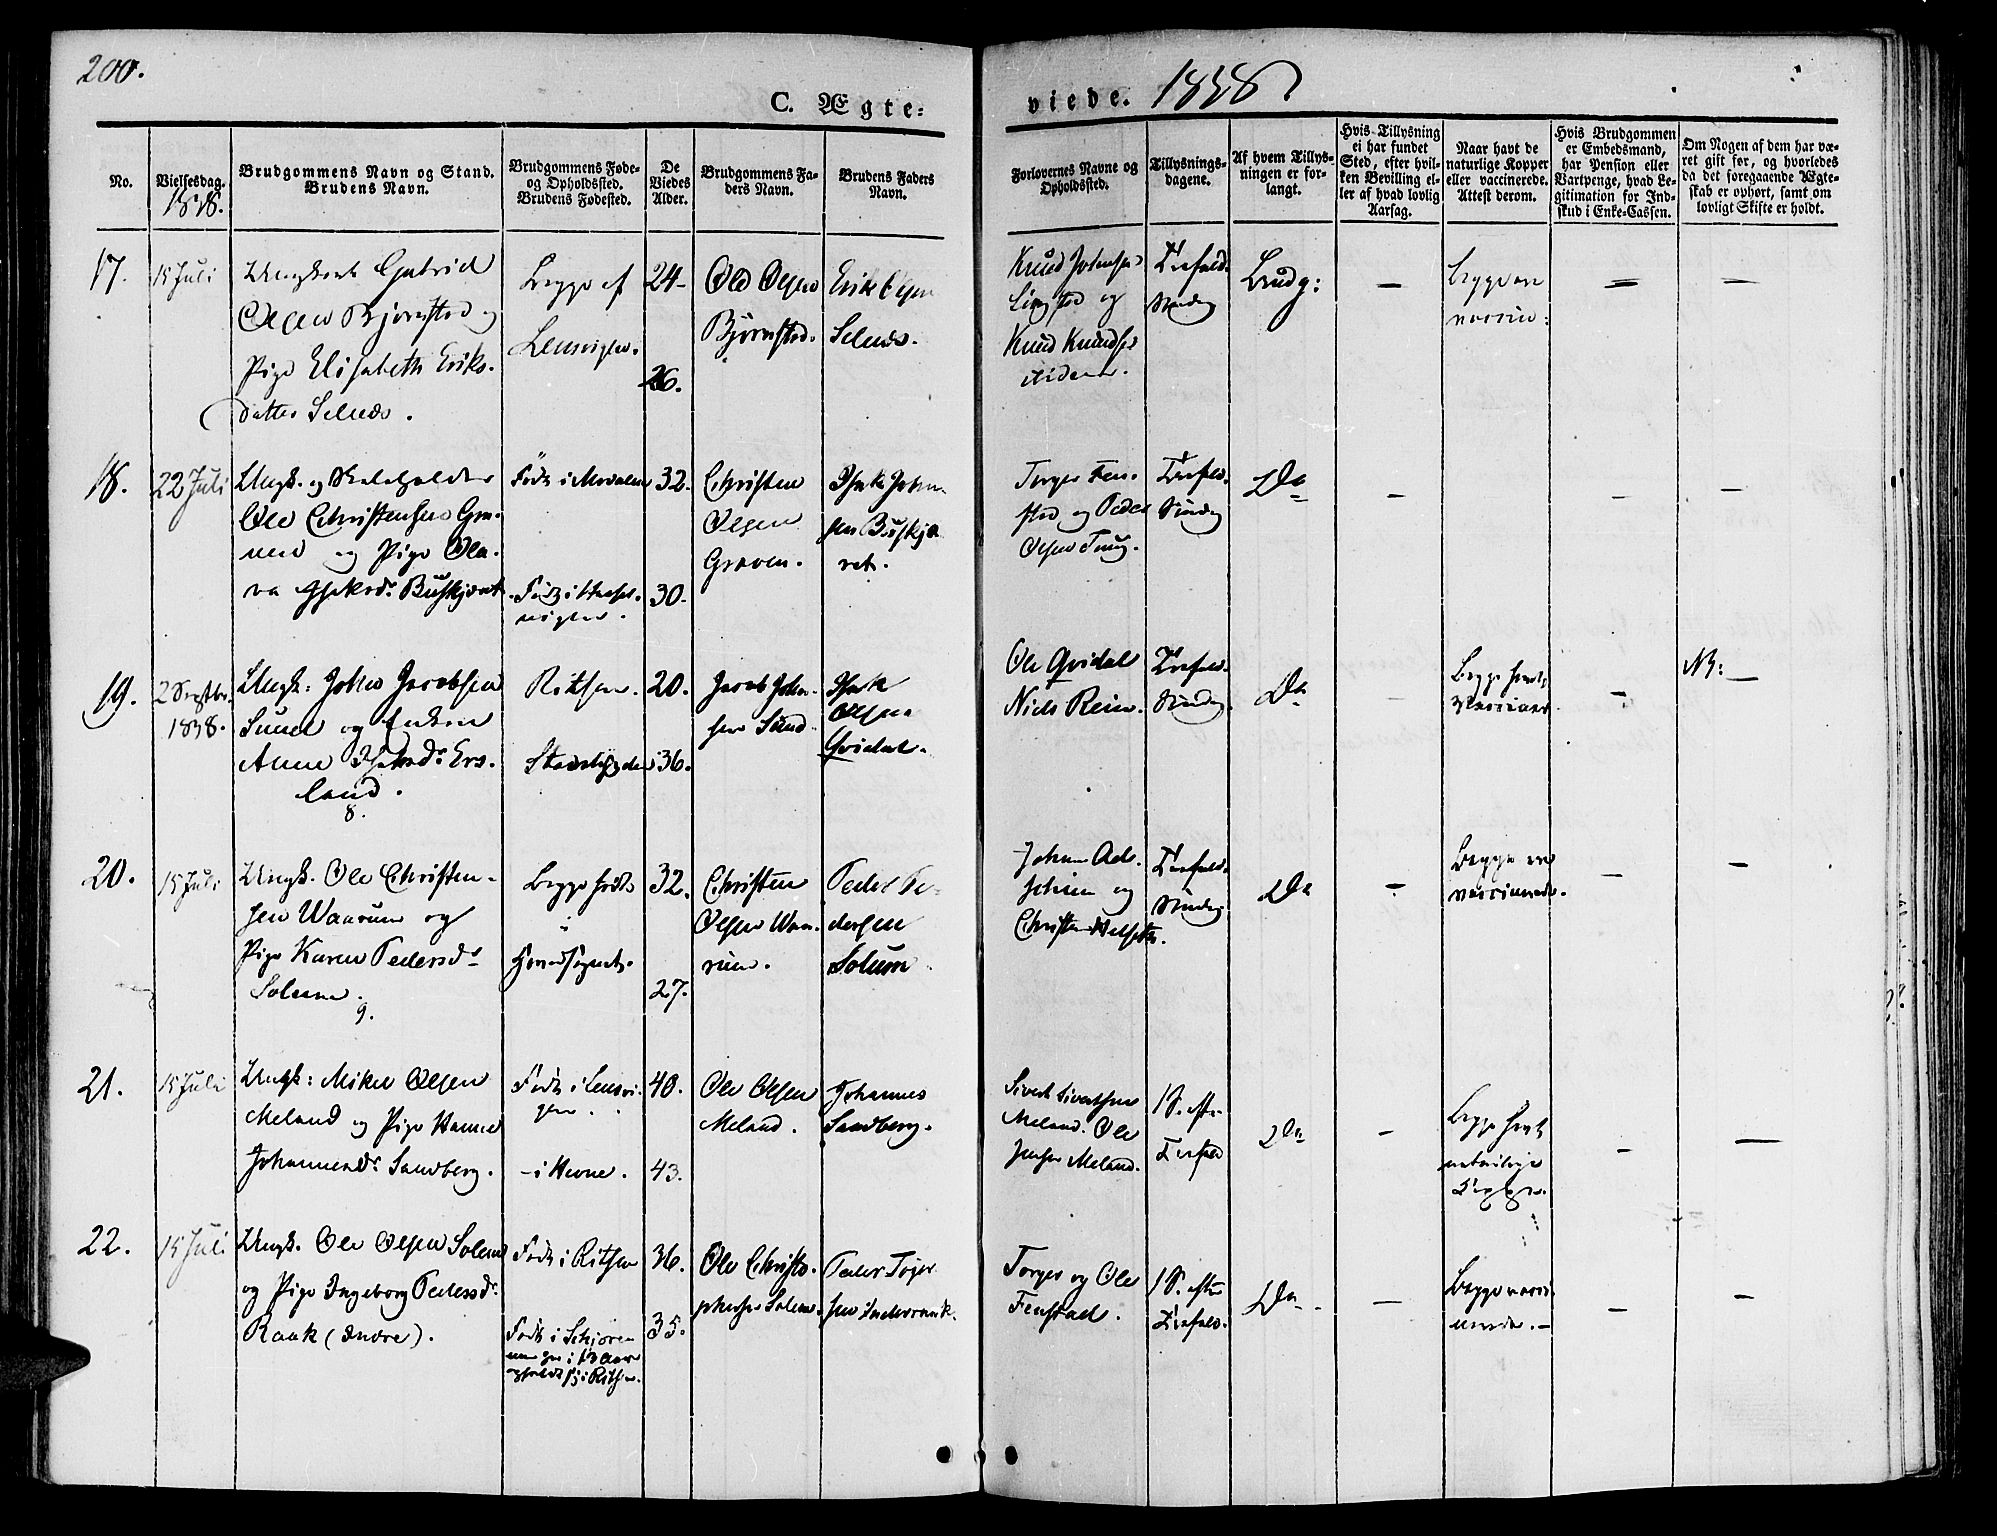 200.
C. Ægte=
viede. 1838
No.
Vielsesdag.
1838.
Brudgommens Navn og Stand.
Brudens Navn.
Brudgommens Føde-
og Opholdssted.
Brudens Fødested.
De
Viedes
Alder.
Brudgommens Fa-
ders Navn.
Brudens Faders
Navn.
Forlovernes Navne og
Opholdssted.
Tillysnings-
dagene.
Af hvem Tillys-
ningen er for-
langt.
Hvis Tillysning
ei har fundet
Sted, efter hvil-
ken Bevilling el-
ler af hvad lovlig
Aarsag.
Naar havt de
naturlige Kopper
eller vaccinerede.
Attest derom.
Hvis Brudgommen
er Embedsmand,
har Pension eller
Vartpenge, hvad Le-
gitimation for Ind-
skud i Enke-Cassen.
Om Nogen af dem har væ-
ret gift før, og hvorledes
da det foregaaende Ægte-
skab er ophørt, samt om
lovligt Skifte er holdt.
17.
15 Juli
Ungkarl Gabriel
Olsen Bjørnstad og
Pige Elisabeth Eriks-
datter Selnæs.
Begge af
Lensvigen.
24
26.
Ole Olsen
Bjørnstad.
Erik Olsen
Selnæs.
Knud Johnsen
og
Knud Knudsen
Brudg:
Begge ere
vaccin:
18.
22 Juli
Ungk. og
Ole Christensen Gra-
ven og Pige Ola-
va Isaksdr Buskjæret
Født i
Født i
32.
30.
Christen
Olsen
Graven.
Isak John-
sen Buskjæ
ret.
Torger Fen-
stad og Peder
Olsen
Do
19.
2 Septbr.
1838.
Ungk: Johan Jacobsen
Sund og Enken
Anne Isaksdr
land.
8.
Ritsen.
Stadsbygden
20.
36.
Jacob John-
sen Sund
Isak
Olsen
Qvidal.
Ole Qvidal
Niels Rein.
Do
Begge havt
NB:
20.
15 Juli
Ungk. Ole Christen-
sen Waarum og
Pige Karen Pedersdr
Solum.
9.
Begge født
i
Hovedsognet.
32.
27.
Christen
Olsen Waa-
rum.
Peder Pe-
dersen
Solum
Johan
og
Christen
Do
Begge ere
vaccinerede.
21.
15 Juli
Ungk: Mikel Olsen
Meland og Pige Hanna
Johannesdr Sandberg.
Født i Lensvi-
gen.
- i Hevne.
40.
43.
Ole Olsen
Meland.
Johannes
Sandberg.
Sivert Sivertsen
Meland. Ole
Jensen Meland.
1 S. efter
Trefold
Do
Begge havt
naturlige
Kopper.
22.
15 Juli
Ungk. Ole Olsen Solem
og Pige Ingeborg Pedersdr
Raak (Indre).
Født i Ritsen
Født i Schjøren
men har i 13 Aar
opholdt sig i Ritsen.
36.
35.
Ole Christo-
phersen Solem.
Peder
sen
Torger og Ole
Fenstad.
1 S. efter
Trefold.
Do
Begge vacci-
nerede.